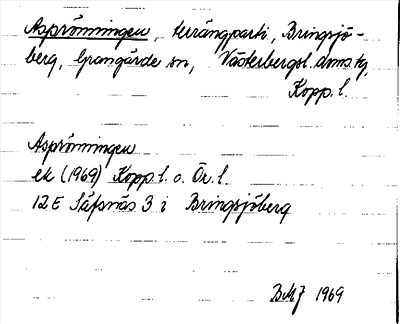 Asprönningen, terrängparti, Bringsjö-
berg, Grangärde sn, Västerbergsl. doms. tg,
Kopp. l.
Asprönningen
ek (1969) Kopp. l. o. Ör. l.
12E Säfsnäs 3 i Bringsjöberg
BMJ 1969